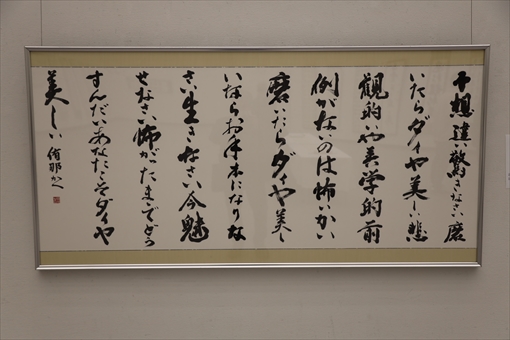 予想違い驚きなさい磨
いたらダイヤ美しい悲
観的いや美学的前
例がないのは怖いかい
磨いたらダイヤ美し
いならお手本になりな
さい生きなさい今魅
せなさい怖がったままでどう
すんだいあなたこそダイヤ
美しい